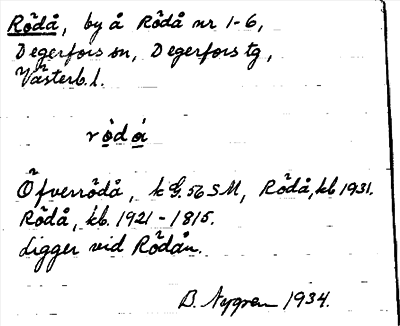 Rödå, by å Rödå nr 1-6,
Degerfors sn, Degerfors tg,
Västerb. l.
rö̀dá
Öfverrödå, k G. 56 SM, Rödå, kb 1931.
Rödå, kb. 1921-1815.
Ligger vid Rödån.
B. Nygren 1934.